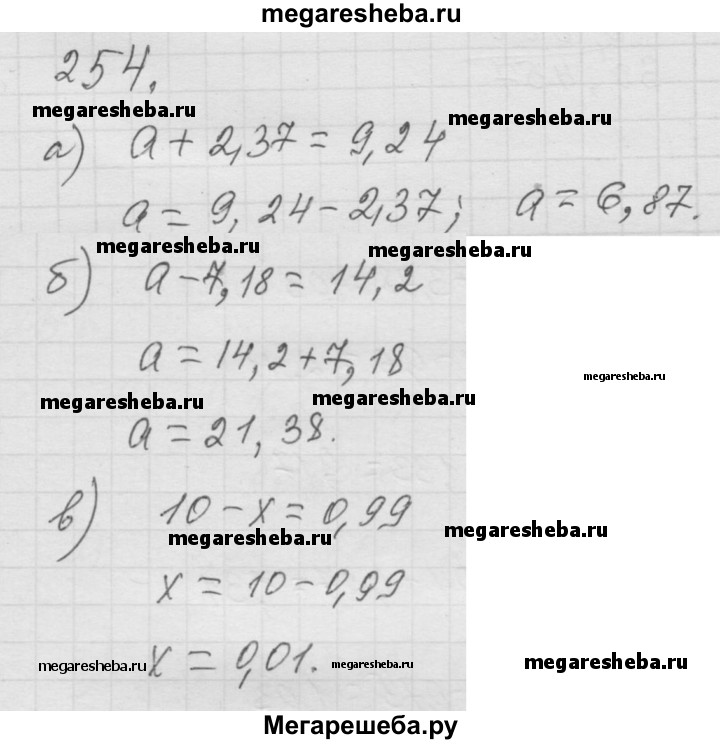 megaresheba.ru
254.
megaresheba.ru megaresheba.ru
а) a + 2,37 = 9,24
a = 9,24 - 2,37; a = 6,87.
megaresheba.ru megaresheba.ru
б) a - 7,18 = 14,2
a = 14,2 + 7,18
megaresheba.ru
megaresheba.ru megaresheba.ru
a = 21,38.
в) 10 - x = 0,99
megaresheba.ru megaresheba.ru
x = 10 - 0,99
x = 0,01.
megaresheba.ru megaresheba.ru megaresheba.ru
Мегарешеба.ру